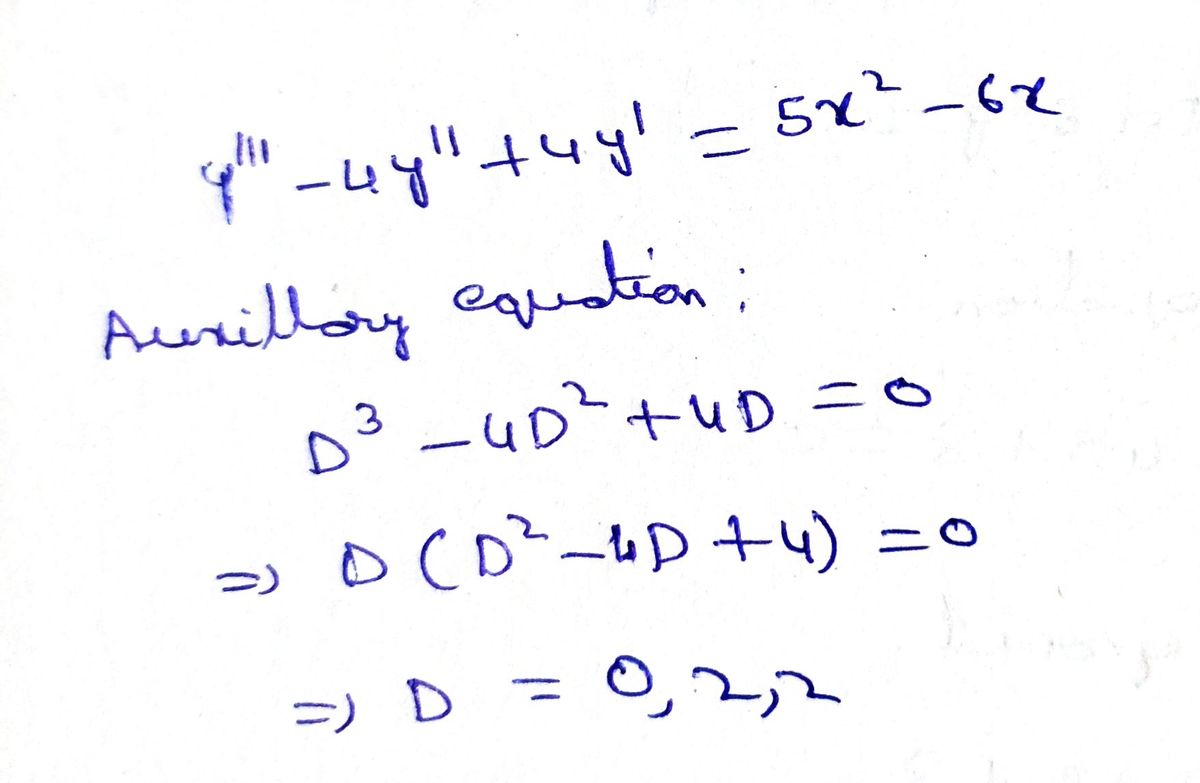 y''' - 4y'' + 4y' = 5x² - 6x
Auxillory equation :
D³ - 4D² + 4D = 0
=> D (D² - 4D + 4) = 0
=> D = 0, 2, 2